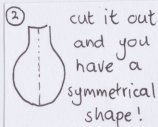 2
cut it out
and you
have a
symmetrical
shape!